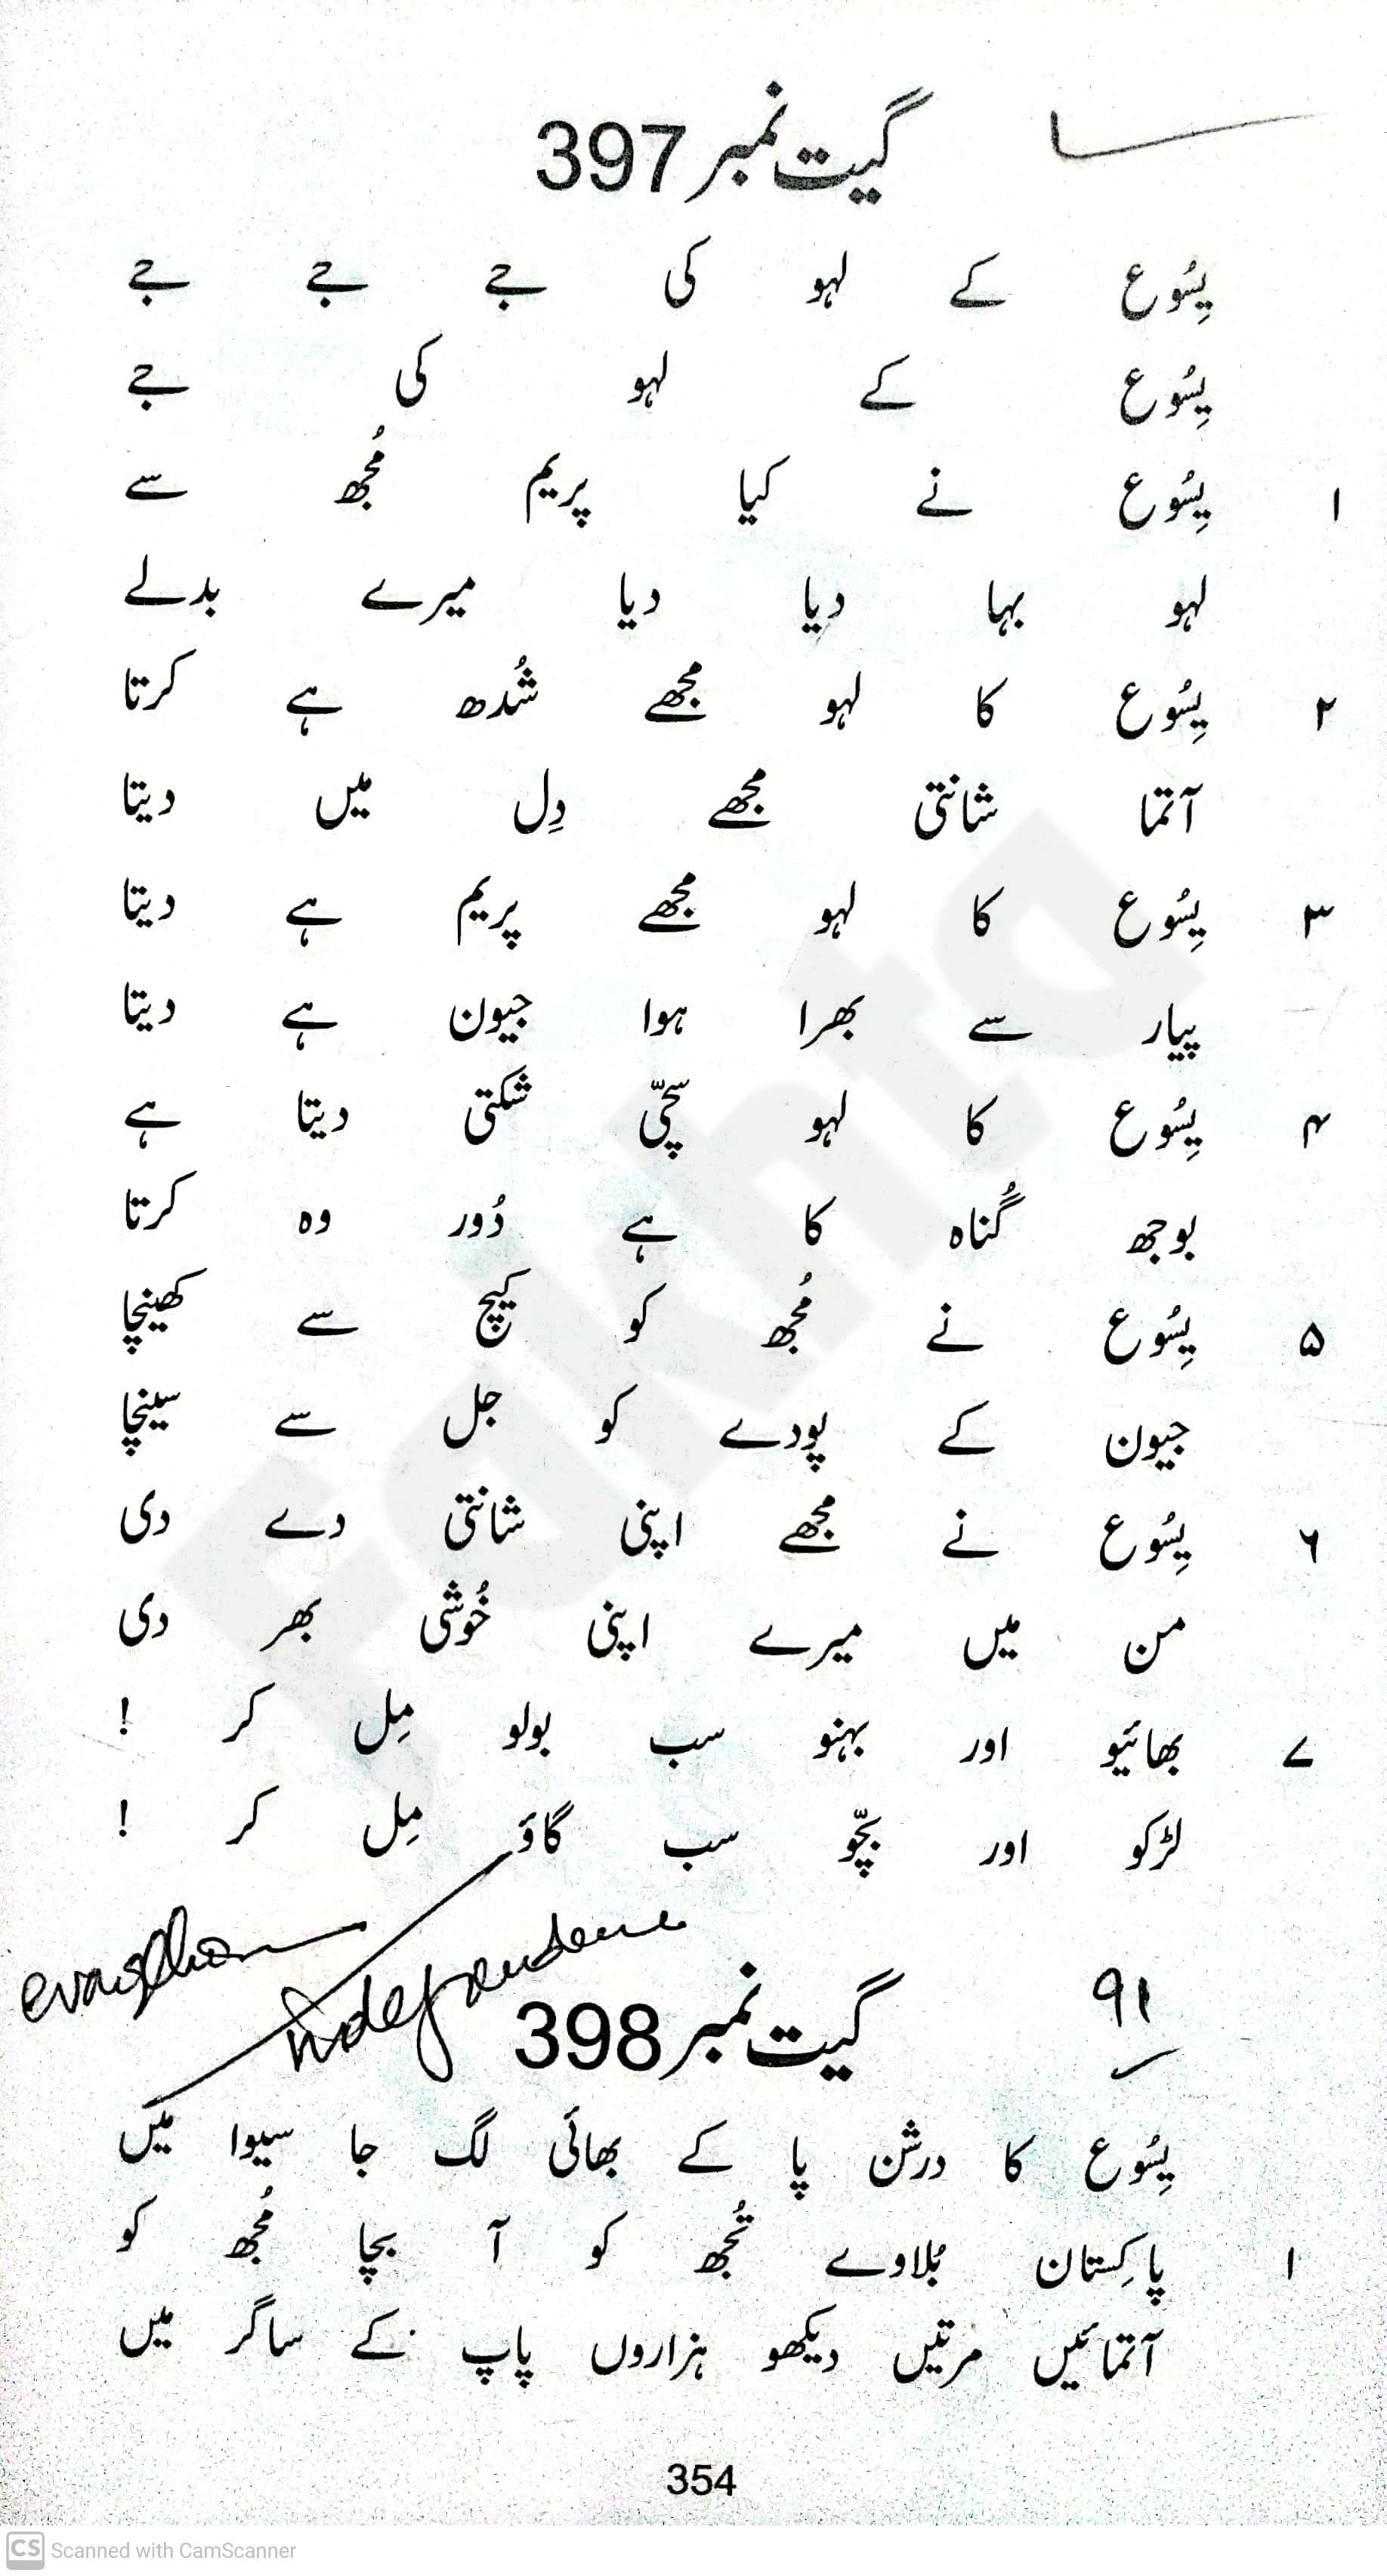 گیت نمبر 397
یِسُوع کے لہو کی جے جے جے
یِسُوع کے لہو کی جے
۱ یِسُوع نے کیا پریم مُجھ سے
لہو بہا دیا دیا میرے بدلے
۲ یِسُوع کا لہو مجھے شُدھ ہے کرتا
آتما شانتی مجھے دِل میں دیتا
۳ یِسُوع کا لہو مجھے پریم ہے دیتا
پیار سے بھرا ہوا جیون ہے دیتا
۴ یِسُوع کا لہو سچّی شکتی دیتا ہے
بوجھ گُناہ کا ہے دُور وہ کرتا
۵ یِسُوع نے مُجھ کو کیچ سے کھینچا
جیون کے پودے کو جل سے سینچا
۶ یِسُوع نے مجھے اپنی شانتی دے دی
من میں میرے اپنی خُوشی بھر دی
۷ بھائیو اور بہنو سب بولو مِل کر !
لڑکو اور بچّو سب گاؤ مِل کر !
independence
گیت نمبر 398
91
یِسُوع کا درشن پا کے بھائی لگ جا سیوا میں
۱ پاکِستان بُلاوے تُجھ کو آ بچا مُجھ کو
آتمائیں مرتیں دیکھو ہزاروں پاپ کے ساگر میں
354
CS Scanned with CamScanner
Fakhta